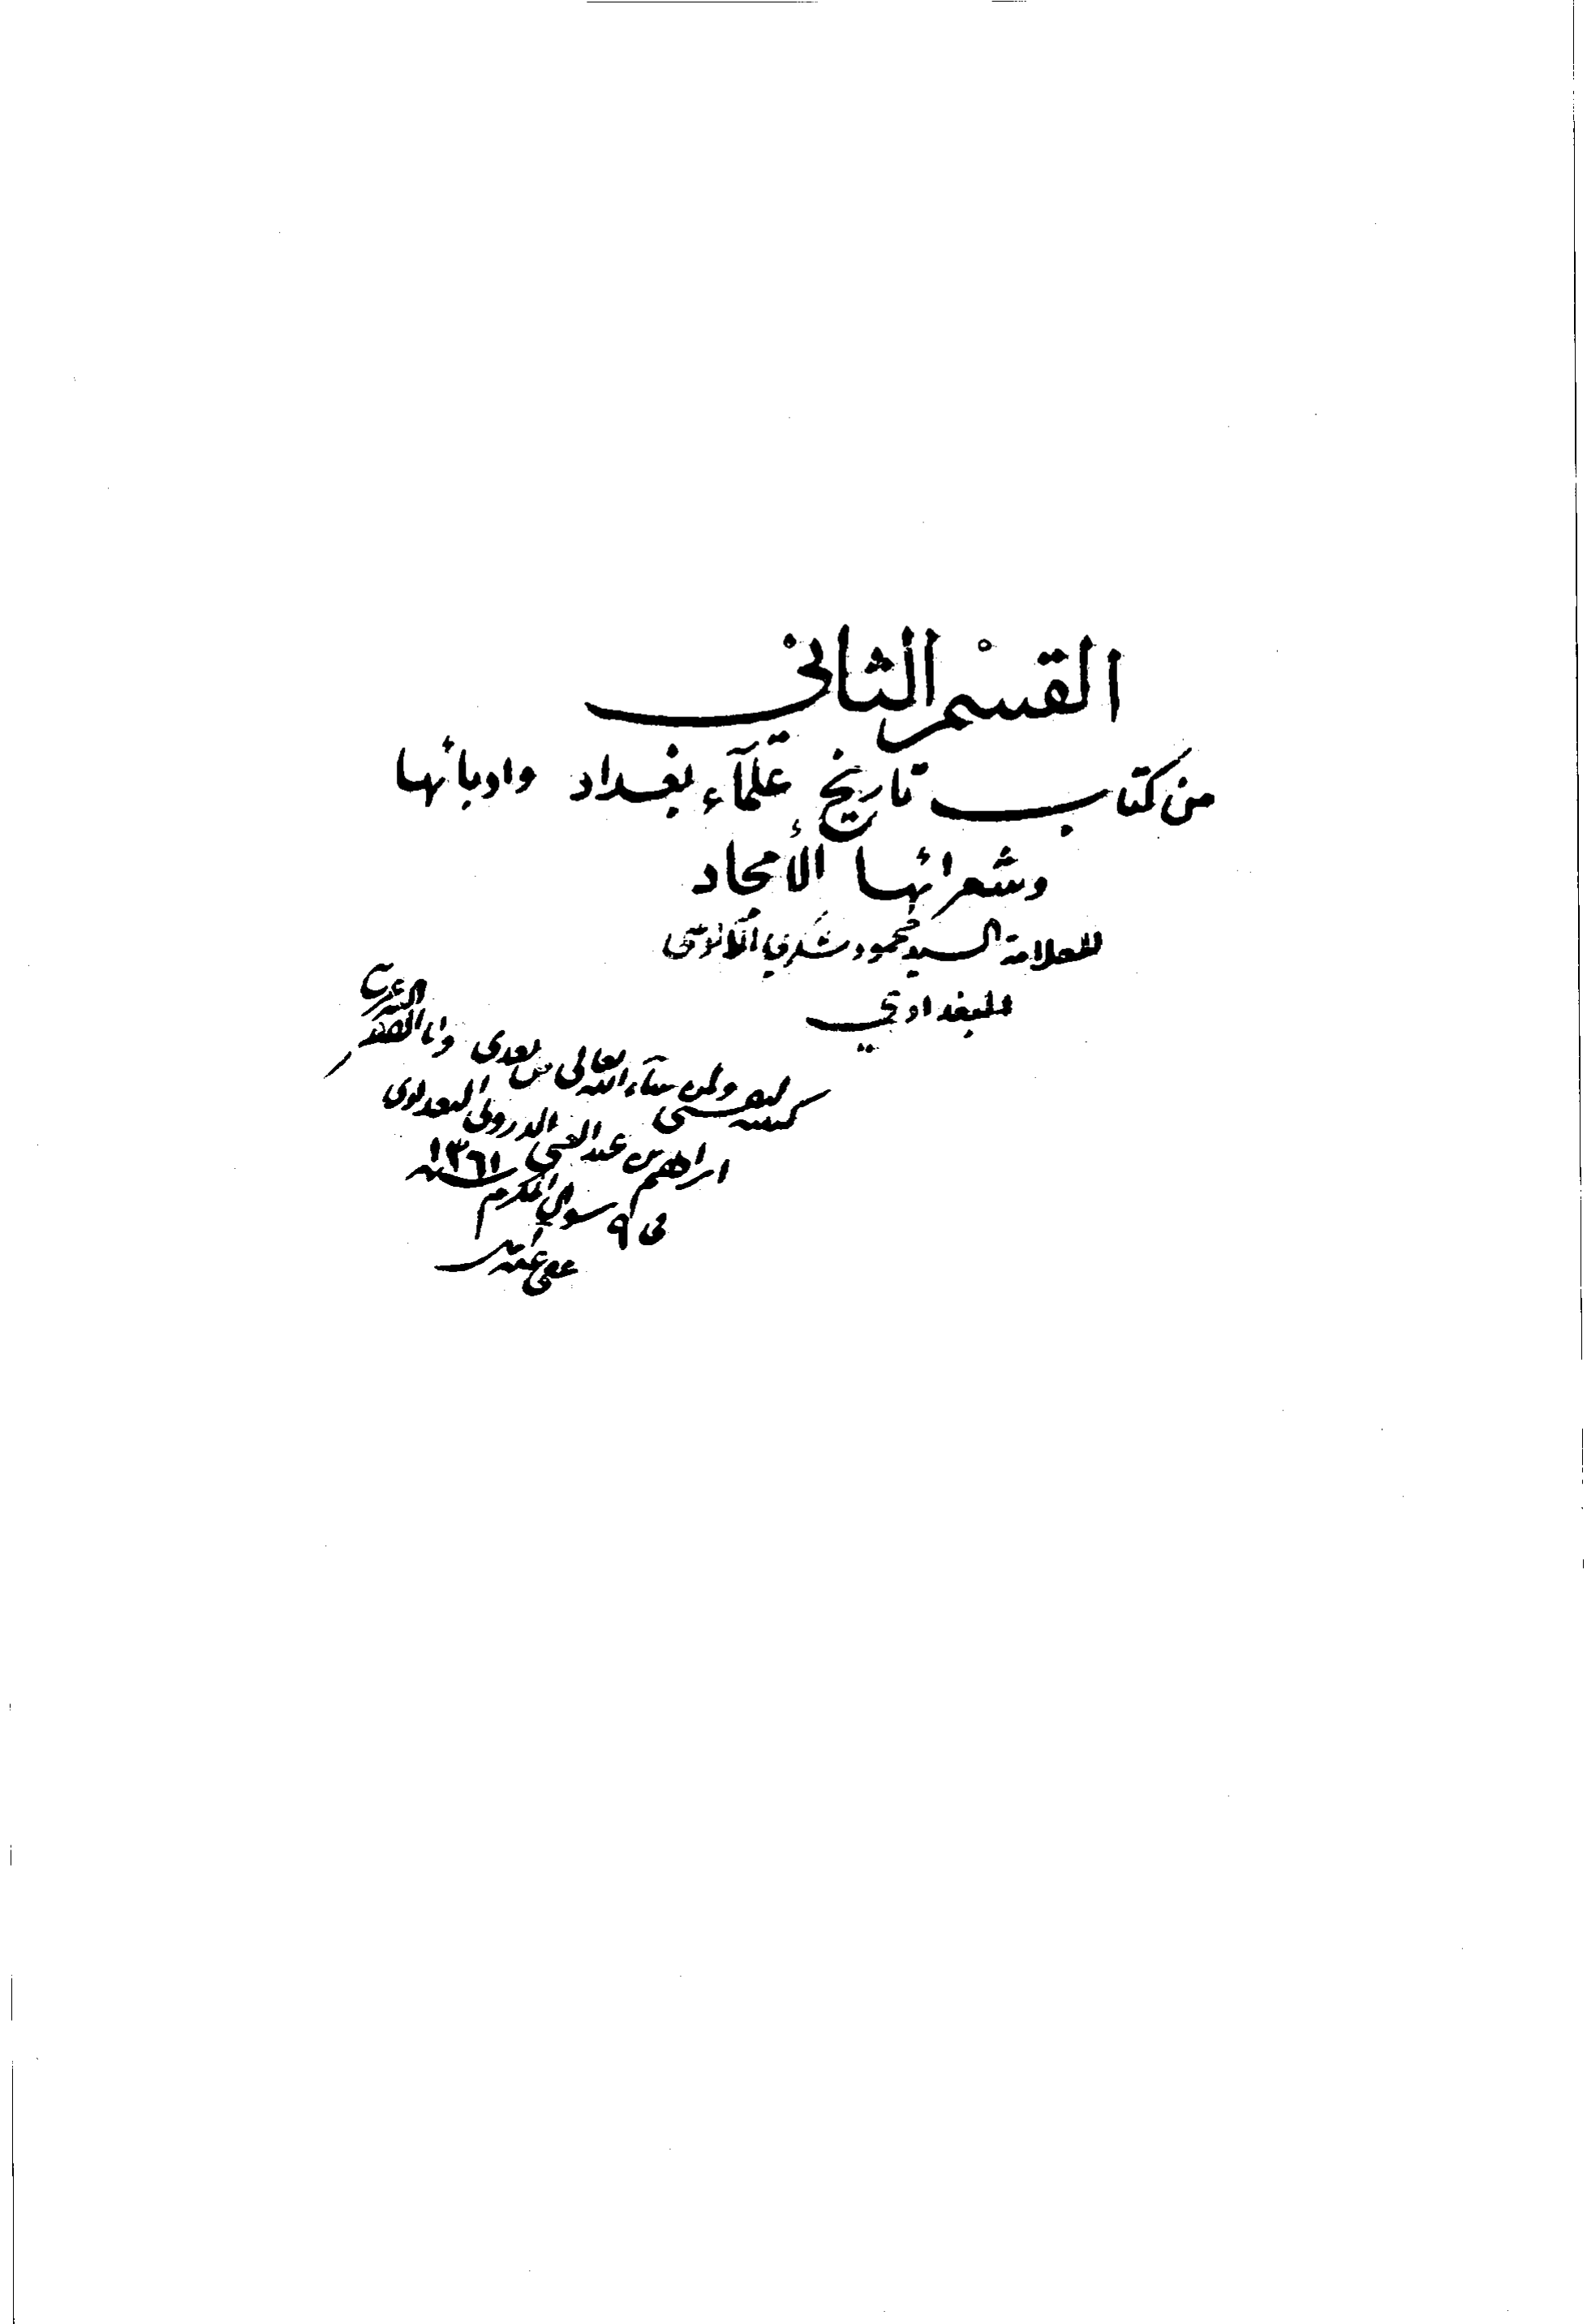 القسْم الثاني
من كتاب تاريخ علمآء بغداد وادبائها
وشعرائها الأمجاد
للعلامة السيد محمود شكري الآلوسي
البغدادي
كتبه لنفسي ولمن شاء الله تعالى من بعدي وانا الفقير
ابراهيم بن عبد الغني الدروبي البغدادي
في ٩ شوال المكرم سنة ١٣٦١
عفي عنه